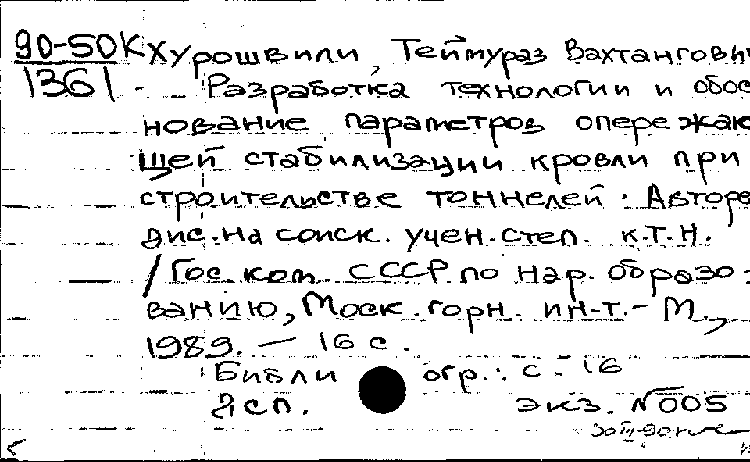 90-50К Хурошвили, Теймураз Вахтангович
1361 Разработка технологии и обос-
нование параметров опережаю-
щей стабилизации кровли при
строительстве тоннелей: Авторе
дис. на соиск. учен. степ. к.т.н.
/Гос. ком. СССР по нар. образо-
ванию, Моск. горн. ин-т. - М.,
1989. — 16 с.
Библиогр.: с. 16
Дсп. экз. №005